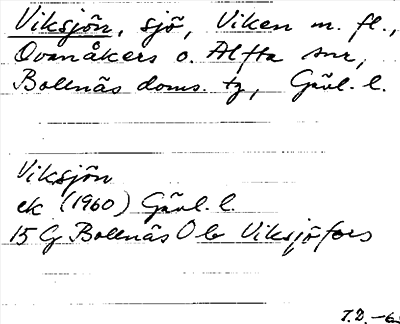 Viksjön, sjö, Viken m. fl.,
Ovanåkers o. Alfta snr,
Bollnäs doms. tg, Gävl. l.
Viksjön
ek (1960) Gävl. l.
15 G Bollnäs O b Viksjöfors